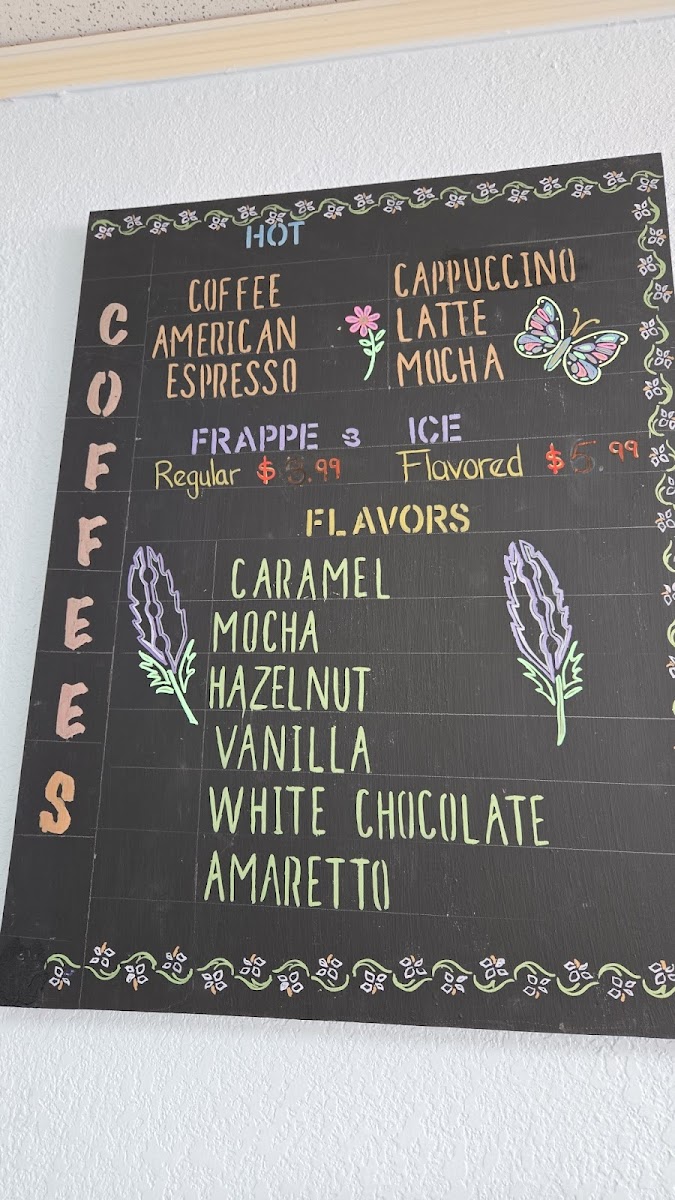 COFFEES
HOT
COFFEE
AMERICAN
ESPRESSO
CAPPUCCINO
LATTE
MOCHA
FRAPPE & ICE
Regular $3.99 Flavored $5.99
FLAVORS
CARAMEL
MOCHA
HAZELNUT
VANILLA
WHITE CHOCOLATE
AMARETTO